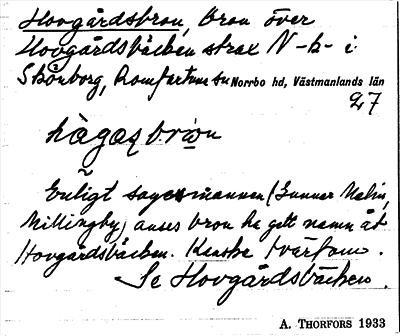 Hovgårdsbron, bron över
Hovgårdsbäcken strax N-h- i
Skönborg, Romfartuna sn Norrbo hd, Västmanlands län
27
Enligt sagesmannen (Gunnar Malm,
Millingby) anses bron ha gett namn åt
Hovgårdsbäcken. Kanske tvärtom.
Se Hovgårdsbäcken.
A. THORFORS 1933